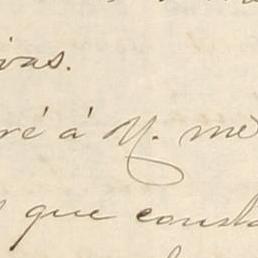 ivas.
ré á N. me
que consta